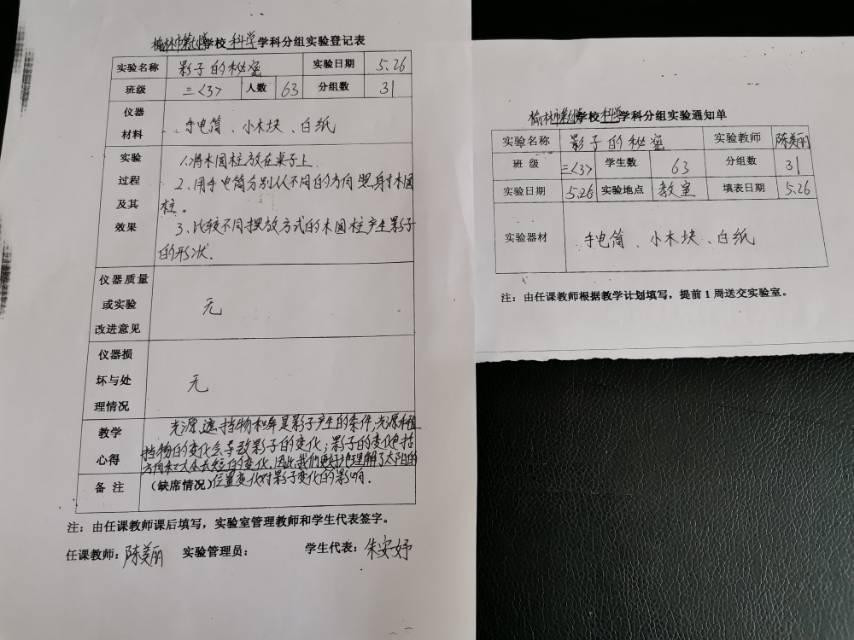 学校科学学科分组实验登记表
实验名称 影子的秘密 实验日期 5.26
班级 三<3> 人数 63 分组数 31
仪器
材料
手电筒、小木块、白纸
实验
过程
及其
效果
1.将木圆柱放在桌子上.
2.用手电筒分别从不同的方向照射木圆
柱。
3.比较不同摆放方式的木圆柱产生影子
的形状.
仪器质量
或实验
改进意见
无
仪器损
坏与处
理情况
无
教学
心得
光源、遮挡物和屏是影子产生的条件,光源和遮
挡物的变化会导致影子的变化;影子的变化包括
方向和大小长短的变化,因此我们更好地理解了太阳的
备注 (缺席情况)位置变化对影子变化的影响.
注:由任课教师课后填写,实验室管理教师和学生代表签字。
任课教师:陈美丽 实验管理员: 学生代表:朱安妤
学校科学学科分组实验通知单
实验名称 影子的秘密 实验教师 陈美丽
班级 三<3> 学生数 63 分组数 31
实验日期 5.26 实验地点 教室 填表日期 5.26
实验器材 手电筒、小木块、白纸
注:由任课教师根据教学计划填写,提前1周送交实验室。